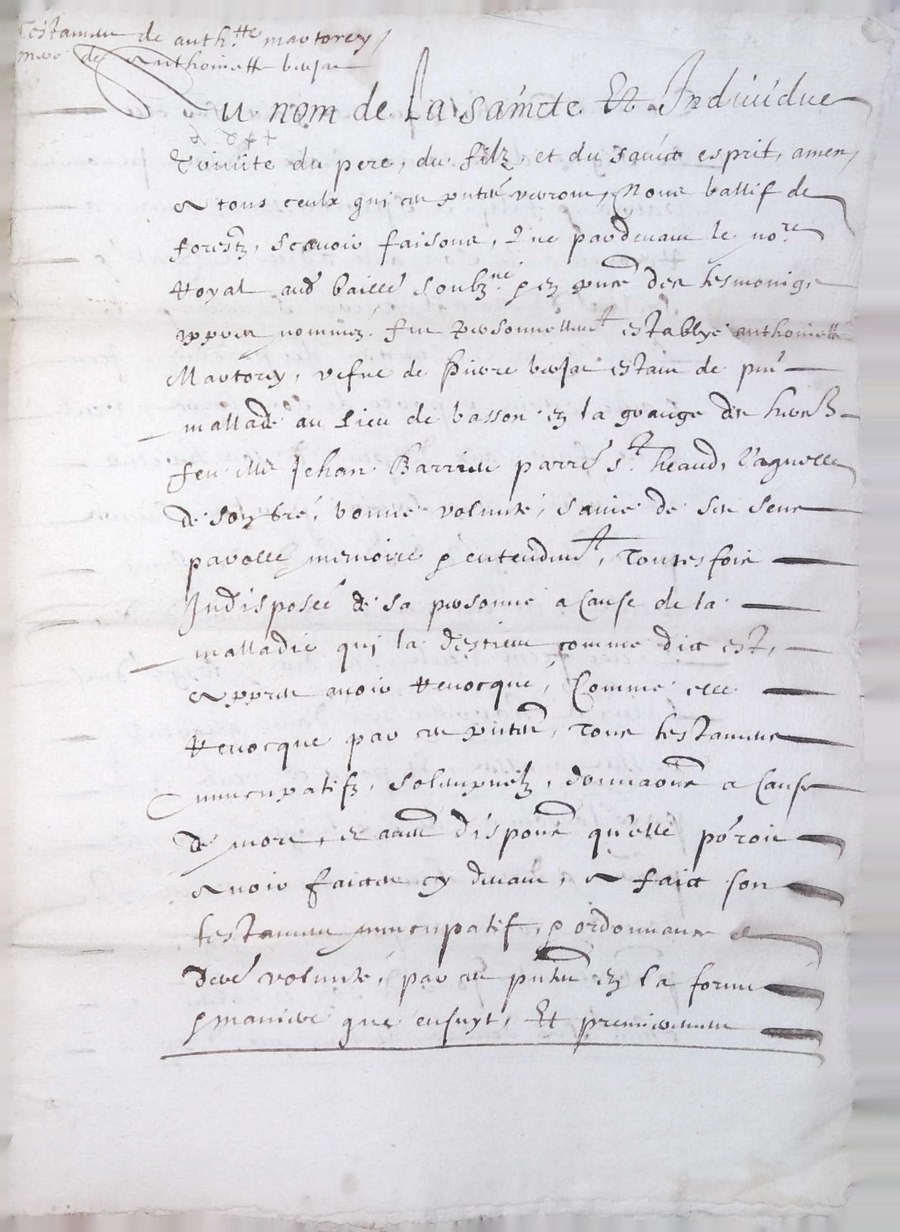 Testament de anth.tte martorey
mere de Anthoinette
Au nom de La saincte Et Individue
Trinité du pere, du filz, et du sainct esprit, amen,
A tous ceulx qui ces pntes verront, Nous ballif de
forestz, scavoir faisons, Que pardevant le no.re
Royal aud bailles soubz.né & en pnce des tesmoings
appres nommez, fut personnellem.t establye anthoinette
Martorey, vefve de Pierre estant de pnt
mallade au Lieu de basson en la grange des hers
feu Me Jehan Barrieu parre St. heand, Laquelle
de son gré, bonne volunté, saine de ses sens
parolle, memoire & entendem.t, Toutesfois
Indisposée de sa personne a Cause de la
malladie qui la destient comme dict est,
Appres avoir Revocqué, Comme elle
Revocque par ces pntes, Tous testamens
nuncupatifz, solempnelz, donnaons a Cause
de mort, et autres disponns qu'elle pöroit
Avoir faictes cy devant, A faict son
testament nuncupatif, & ordonnance de
derre volunté, par ces pntes en la forme
& maniere que ensuyt, Et premierement